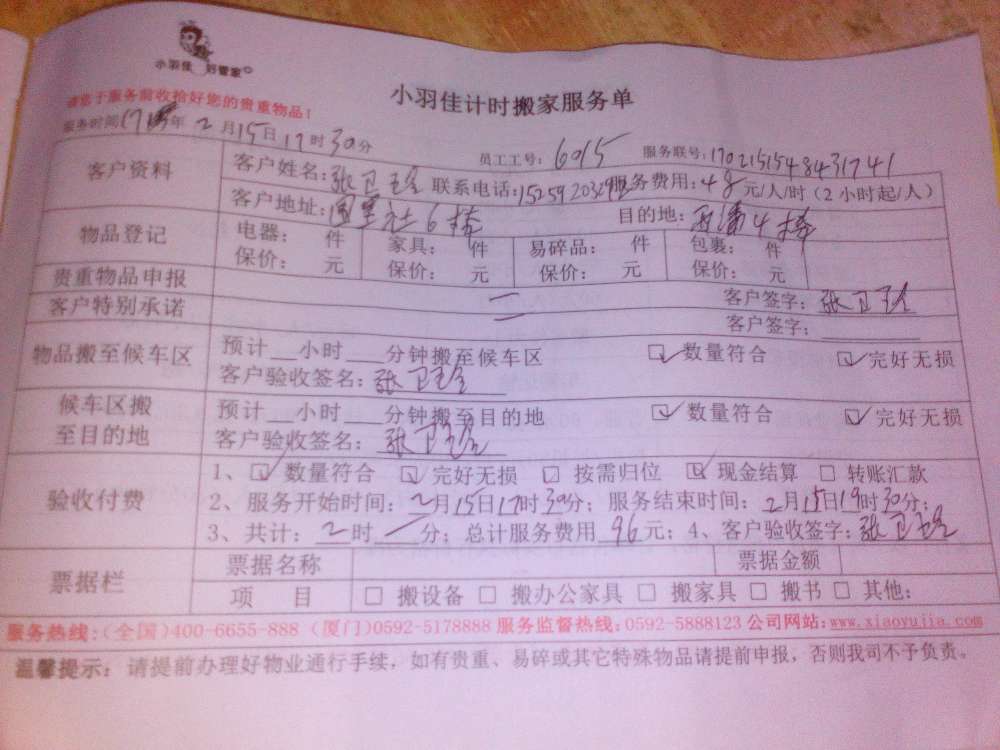 小羽佳 好管家
小羽佳计时搬家服务单
请您于服务前收拾好您的贵重物品!
服务时间17年2月15日17时30分
员工工号:6015 服务联号:1702151548431741
客户资料
客户姓名:张卫 联系电话: 服务费用:48元/人/时(2小时起/人)
客户地址:社6栋 目的地:4栋
物品登记
电器: 件 家具: 件 易碎品: 件 包裹: 件
保价: 元 保价: 元 保价: 元 保价: 元
贵重物品申报 客户签字:张卫
客户特别承诺 客户签字:
物品搬至候车区
预计 小时 分钟搬至候车区 ☑数量符合 ☑完好无损
客户验收签名:张卫
候车区搬至目的地
预计 小时 分钟搬至目的地 ☑数量符合 ☑完好无损
客户验收签名:张卫
验收付费
1、☑数量符合 ☑完好无损 □按需归位 ☑现金结算 □转账汇款
2、服务开始时间:2月15日17时30分;服务结束时间:2月15日19时30分;
3、共计:2时一分;总计服务费用96元;4、客户验收签字:张卫
票据栏
票据名称 票据金额
项 目 □搬设备 □搬办公家具 □搬家具 □搬书 □其他:
服务热线:(全国)400-6655-888 (厦门)0592-5178888 服务监督热线:0592-5888123 公司网站:www.xiaoyujia.com
温馨提示:请提前办理好物业通行手续,如有贵重、易碎或其它特殊物品请提前申报,否则我司不予负责。